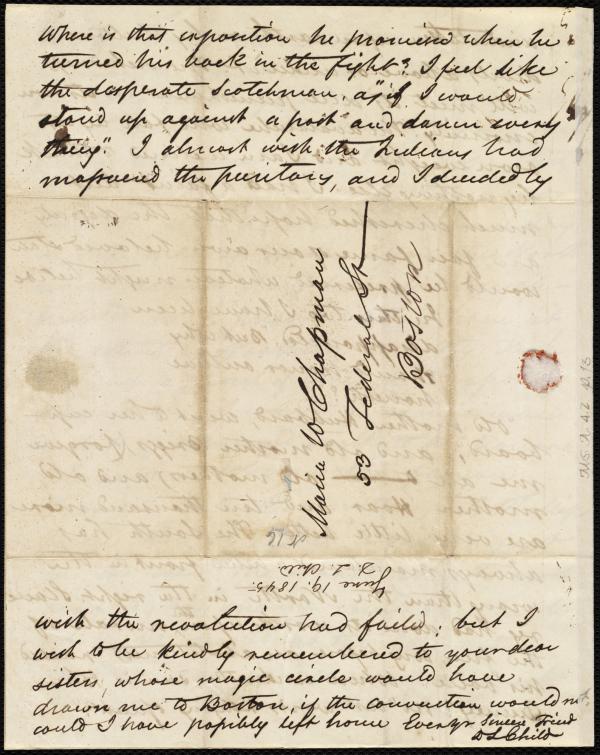 Where is that exposition he promised when he
turned his back in the fight? I feel like
the desperate Scotchman, as "if I would
stand up against a post and damn every
thing." I almost wish the Indians had
massacred the puritans, and I decidedly
Maria W Chapman
53 Federal St
Boston
June 19. 1845.
D. L. Child
wish the revolution had faild; but I
wish to be kindly remembered to your dear
sisters, whose magic circle would have
drawn me to Boston, if the convention would not
could I have possibly left home Ever yr Sincere Friend
D L Child